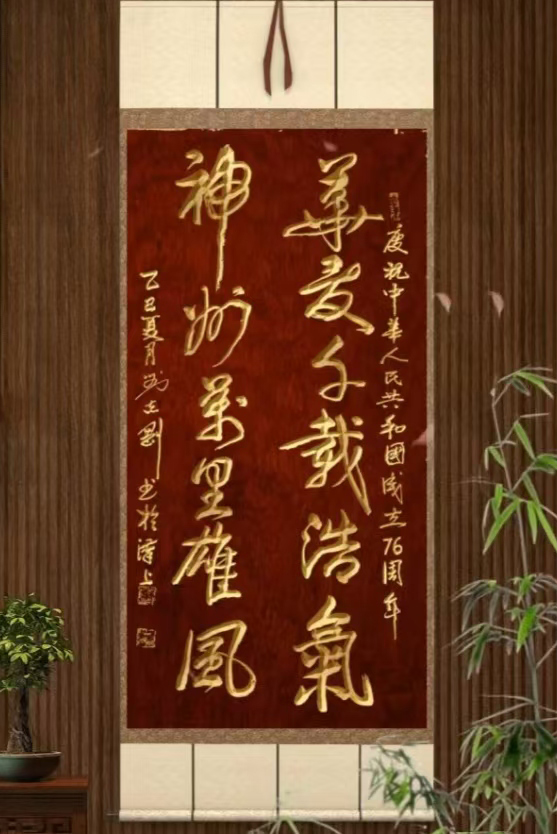 慶祝中華人民共和國成立76周年
華夏千載浩氣
神州萬里雄風
乙巳夏月劉志剛书於漢上